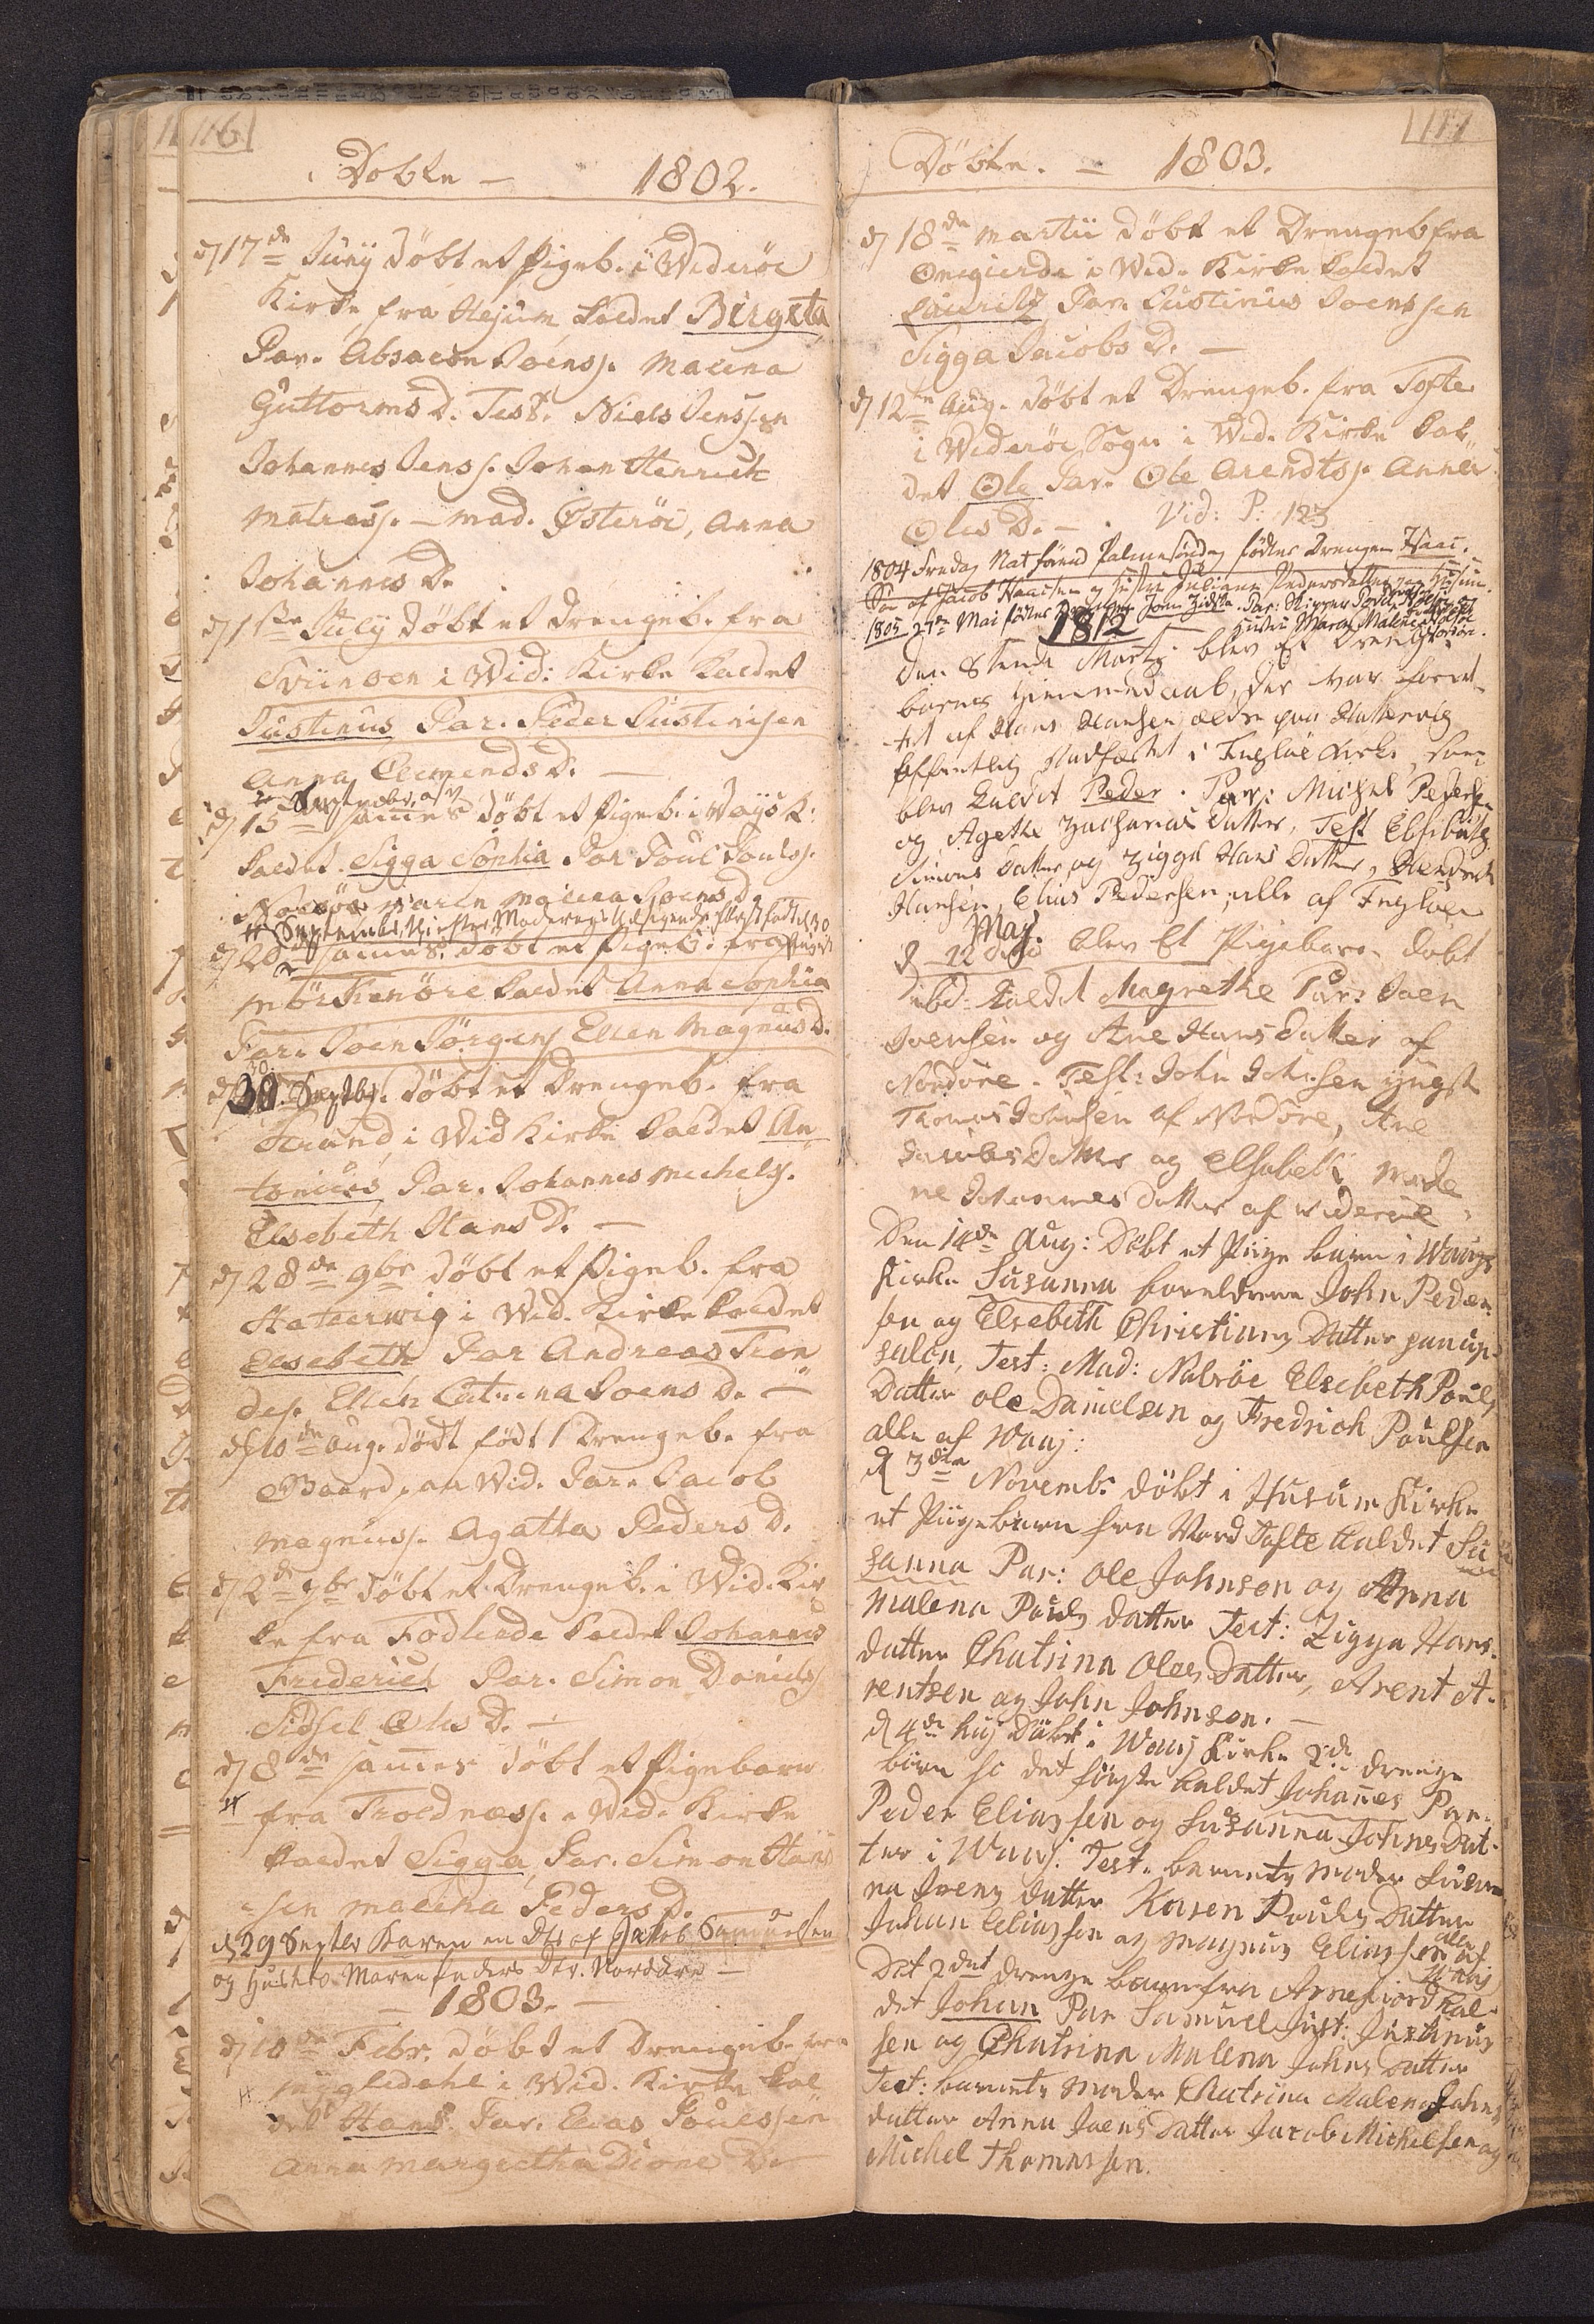 116
Dobte – 1802.
d 17de Juny döbt et Pigeb. i Wideröe
Kirke fra Hejum kaldet Birgeta
Par. Absalon Joens. Malena
Guttorms D. Test. Niels Jenssen
Johannes Jens. Johan Henrich
Matras. – Mad. Østeröe, Anna
Johannes D.
d 1ste July döbt et Drengeb. fra
Sviinoen i Wid: Kirke kaldet
Justinus Par. Peder Justinisen
Anna Clemends D. –
d 15 Septembr. döbt et Pigeb. i Vaÿs K.
kaldet Sigga Sophia Par Poul Pouls.
Malena Joens D.
d 20 Samme döbt et Pigeb. fra
Norderöre kaldet Anna Sophia
Par. Joen Jörgens Ellen Magnus D.
d 30. Septbr. döbt et Drengeb. fra
Strand i Wid Kirke kaldet An
tonius Par. Johannes Michels.
Elsebeth Hans D. –
d 28de 9br döbt et Pigeb. fra
Hatterwig i Wid. Kirke kaldet
Elsebeth Par Andreas Tron
des. Ellen Catrina Joens D. –
d 10de Aug. dödt födt 1 Drengeb. fra
Gaard paa Wid. Par. Jacob
Magnus. Agatta Peders D.
d 2de 9br döbt et Drengeb. i Wid. Kir
ke fra Födlende kaldet Johannes
Friderich Par. Simon Daniels
Sidsel Oles D. –
d 8de samme döbt et Pigebarn
fra Troldness. i Wid. Kirke
kaldet Sigga, Par. Simon Han
sen Malena Peders D.
d 29 Septbr Karen en Dtr af Jakob Samuelsen
og Hustro Maren Peders Dtr. Nordöre –
– 1803. –
d 10de Febr. döbt et Drengeb. fra
Mygledahl i Wid. Kirke kal
det Hans. Par. Elias Pouelssen
Anna Margretha Dione D.
117
Döbte. – 1803.
d 18de Martii döbt et Drengeb fra
Onegierde i Wid. Kirke kaldet
Lauritz Par. Justinus Joenssen
Sigga Jacobs D. –
d 12te Aug. döbt et Drengeb. fra Tofte
i Wideröe Sogn i Wid. Kirke kal
det Ole Par. Ole Arendts. Anna
Oles D. – . Vid: P: 123
1804 Fredag Nat förend Palmesöndag födtes Drengen Isaac.
Sön af Jacob Hansen og Hustru Juliane Pedersdatter paa Husum.
1805 27de Mai födtes Drengen
1812
Den 8tende Martz blev et Drenge
barnes Hiemmedaab, der var foret
tet af Hans Hansen ældre paa Hattervig
Offentlig Stadfæstet i Fugloe Kirke, som
blev kaldet Peder. Par: Michel Pedersen
og Agethe Zacharias datter, Test Elsebeth
Simons datter og Zigga Hans datter, Hendrik
Hansen, Elias Pedersen, alle af Fugloe
May.
d 12 blev Et Pigebarn döbt
ibd. kaldet Magrethe Par: Joen
Joensen og Ane Hans datter af
Nordöre. Test: John Johnsen yngst
Thomas Johnsen af Nordöre, Ane
Jacobs datter og Elsabeth Male
ne Johannes datter af Wideröe
Den 14de Aug: Döbt et Piige barn i Waays
Kirke Susanna Foreldrene John Peder
sen og Elsebeth Christians datter paa up
salen, Test: Mad: Nalsöe Elsebeth Pouls
datter Ole Danielsen og Fredrich Poulsen
alle af Waaj:
d 3die Novemb. döbt i Husum Kirke
et Piigebarn fra Nord Tofte kaldet Su
sanna Par: Ole Johnson og Anna
Malena Pouls datter Test: Zigga Hans
datter Chatrina Oles datter, Arent A-
rentsen og John Johnson. –
d 4de huj Döbt i Waaj Kirke 2de drenge
börn sc det förste kaldet Johannes Par.
Peder Eliassen og Susanna Johns dat
ter i Waaj. Test. barnets Moder Susan
na Joens datter Karen Pouls datter
Johan Eliassen og Magnus Eliassen alle af
Waaj
Det 2det drenge barn fra Arnefiord kal
det Johan Par Samuel Just: Justinus
sen og Chatrina Malena Johns datter
Test: barnets Moder Chatrina Malena Johns
datter Anna Joens datter Jacob Michelsen og
Michel Thomassen.